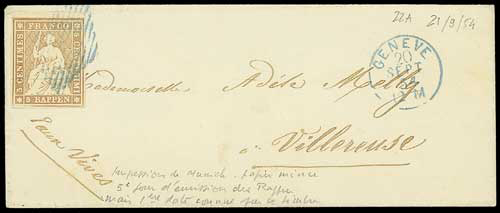 22A 21/9/54
FRANCO
5 CENTIMES
5 RAPPEN
GENEVE
20
SEPT
54
M
Mademoiselle Adèle Melly
à Villereuse
Eaux Vives
Impression de Munich papier mince
5e jour d'émission des Rappen
mais 1ère date connue pour ce timbre